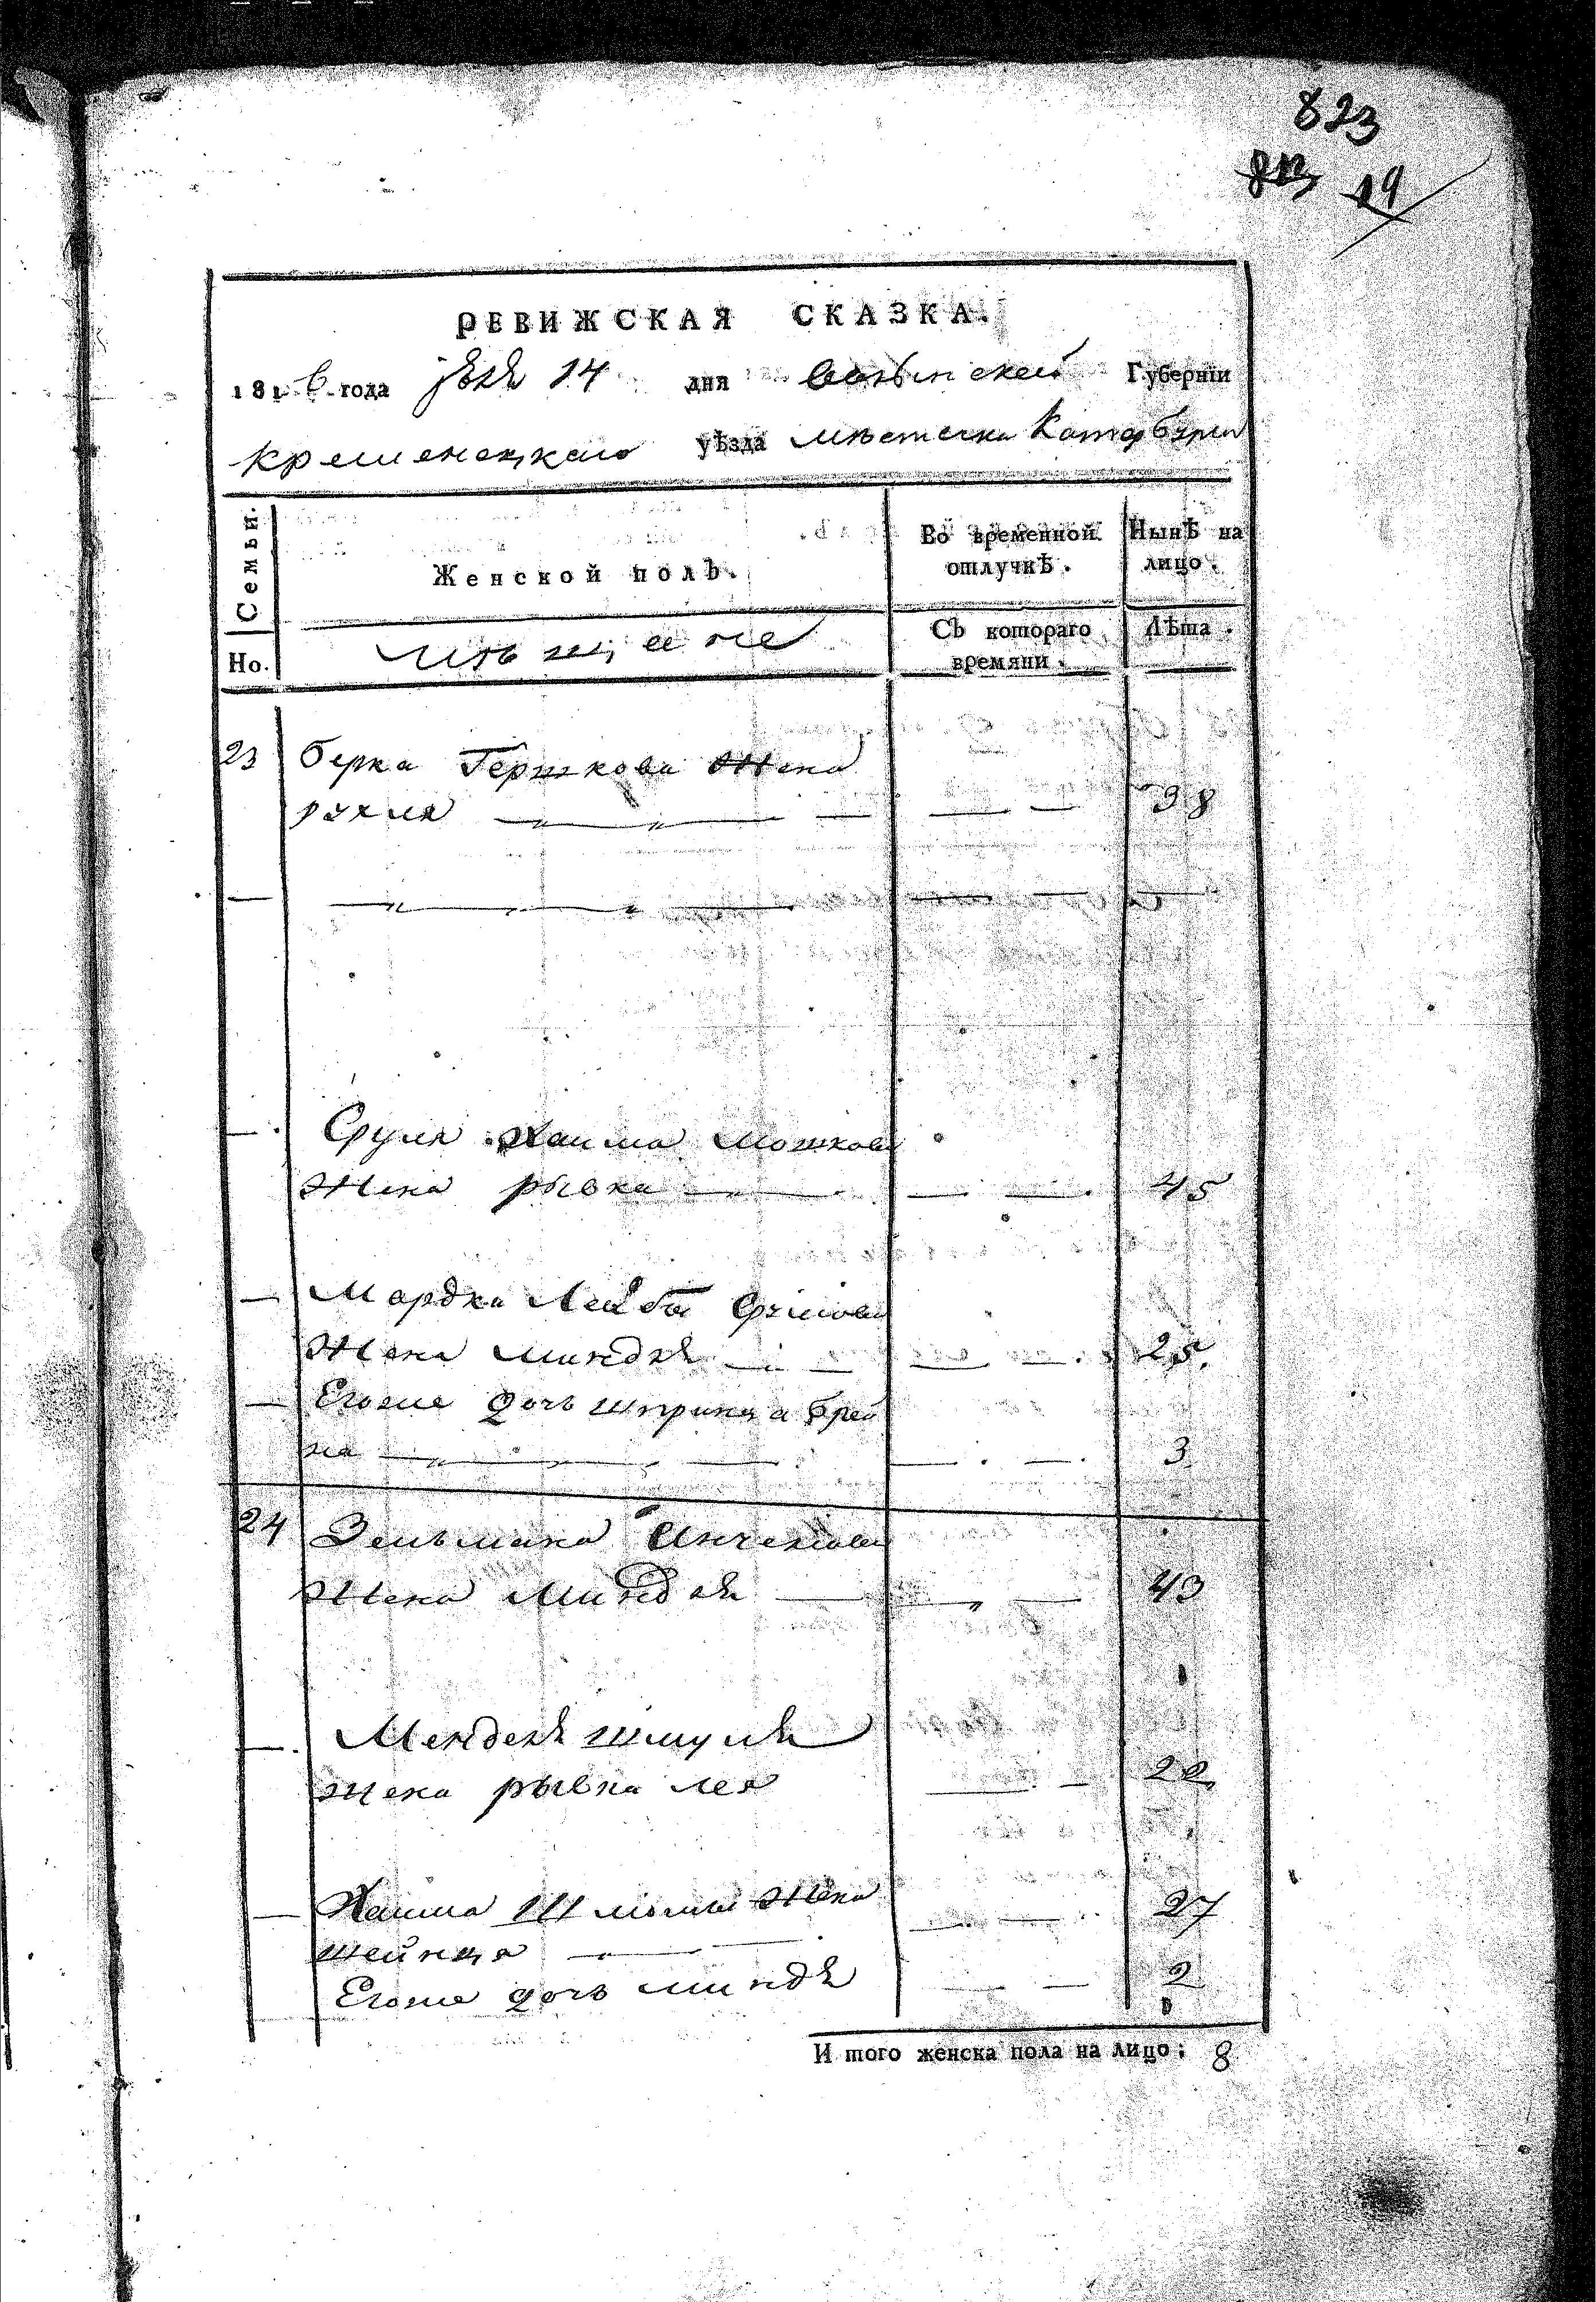 823
813 19
РЕВИЖСКАЯ СКАЗКА.
1816 года 14 дня Волынской Губернїи
Кременецкаго уѣзда мѣстечка Катербурга
Семьи.
Но.
Женской полъ.
Во временной отлучкѣ.
Нынѣ на лицо.
мѣщане
Съ котораго времяни.
Лѣта.
23 Берка Гершкова жена
рухля 38
Сруля Хаима Мошкова
жена рывка 45
Мордка Лейбы Срулова
жена миндля 25
Егоже дочь шпринца брей
на 3
24 Зельмана Янчелова
жена Миндля 43
Менделя шмуля
жена рывка лея 22
Хаима Шломы жена 27
шейндя
Егоже дочь миндя 2
И того женска пола на лицо: 8